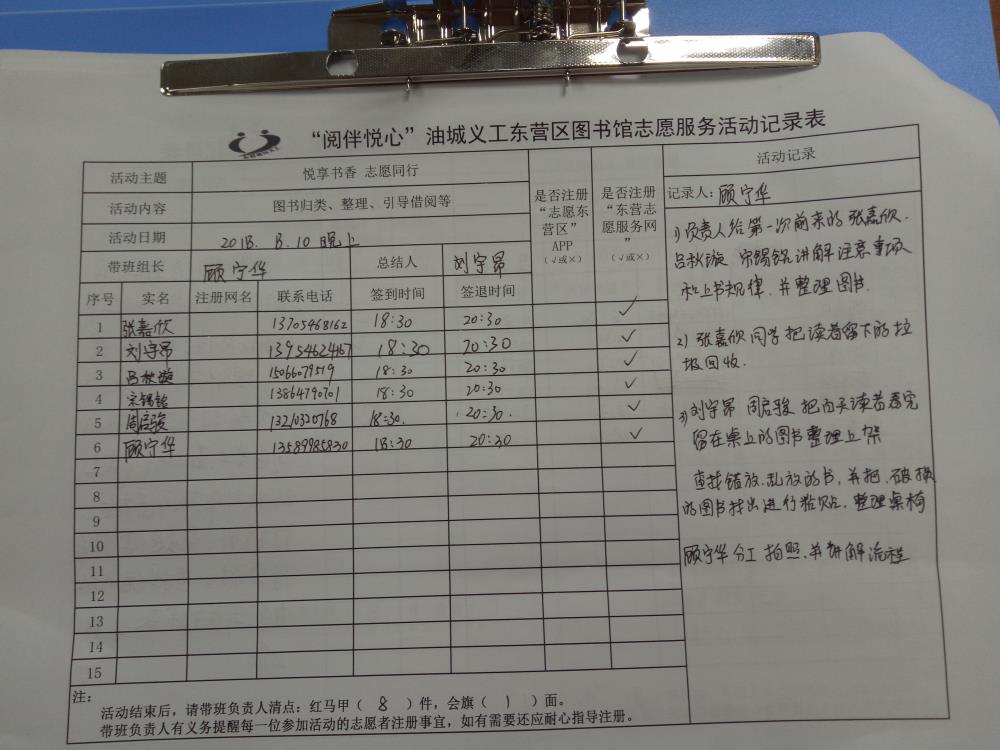 “阅伴悦心”油城义工东营区图书馆志愿服务活动记录表
活动主题 悦享书香 志愿同行
活动内容 图书归类、整理、引导借阅等
活动日期 2018. 8.10 晚上
带班组长 顾宁华 总结人 刘宇昂
是否注册“志愿东营区”APP（√或×）
是否注册“东营志愿服务网”（√或×）
序号 实名 注册网名 联系电话 签到时间 签退时间
1 张嘉欣 13705468162 18:30 20:30 ✓
2 刘宇昂 13954624167 18:30 20:30 ✓
3 吕秋漩 15066079519 18:30 20:30 ✓
4 宋锡铭 13864790701 18:30 20:30 ✓
5 周启骏 13210320768 18:30. 20:30. ✓
6 顾宁华 13589985830 18:30 20:30 ✓
7
8
9
10
11
12
13
14
15
注：
活动结束后，请带班负责人清点：红马甲（ 8 ）件，会旗（ 1 ）面。
带班负责人有义务提醒每一位参加活动的志愿者注册事宜，如有需要还应耐心指导注册。
活动记录
记录人：顾宁华
1）负责人给第一次前来的张嘉欣.
吕秋漩 宋锡铭讲解注意事项
和上书规律.并整理图书.
2）张嘉欣同学把读者留下的垃
圾回收.
3）刘宇昂 周启骏 把内天读者看完
留在桌上的图书整理上架
查找错放.乱放的书,并把.破损
的图书找出进行粘贴.整理桌椅
顾宁华分工拍照.并讲解流程